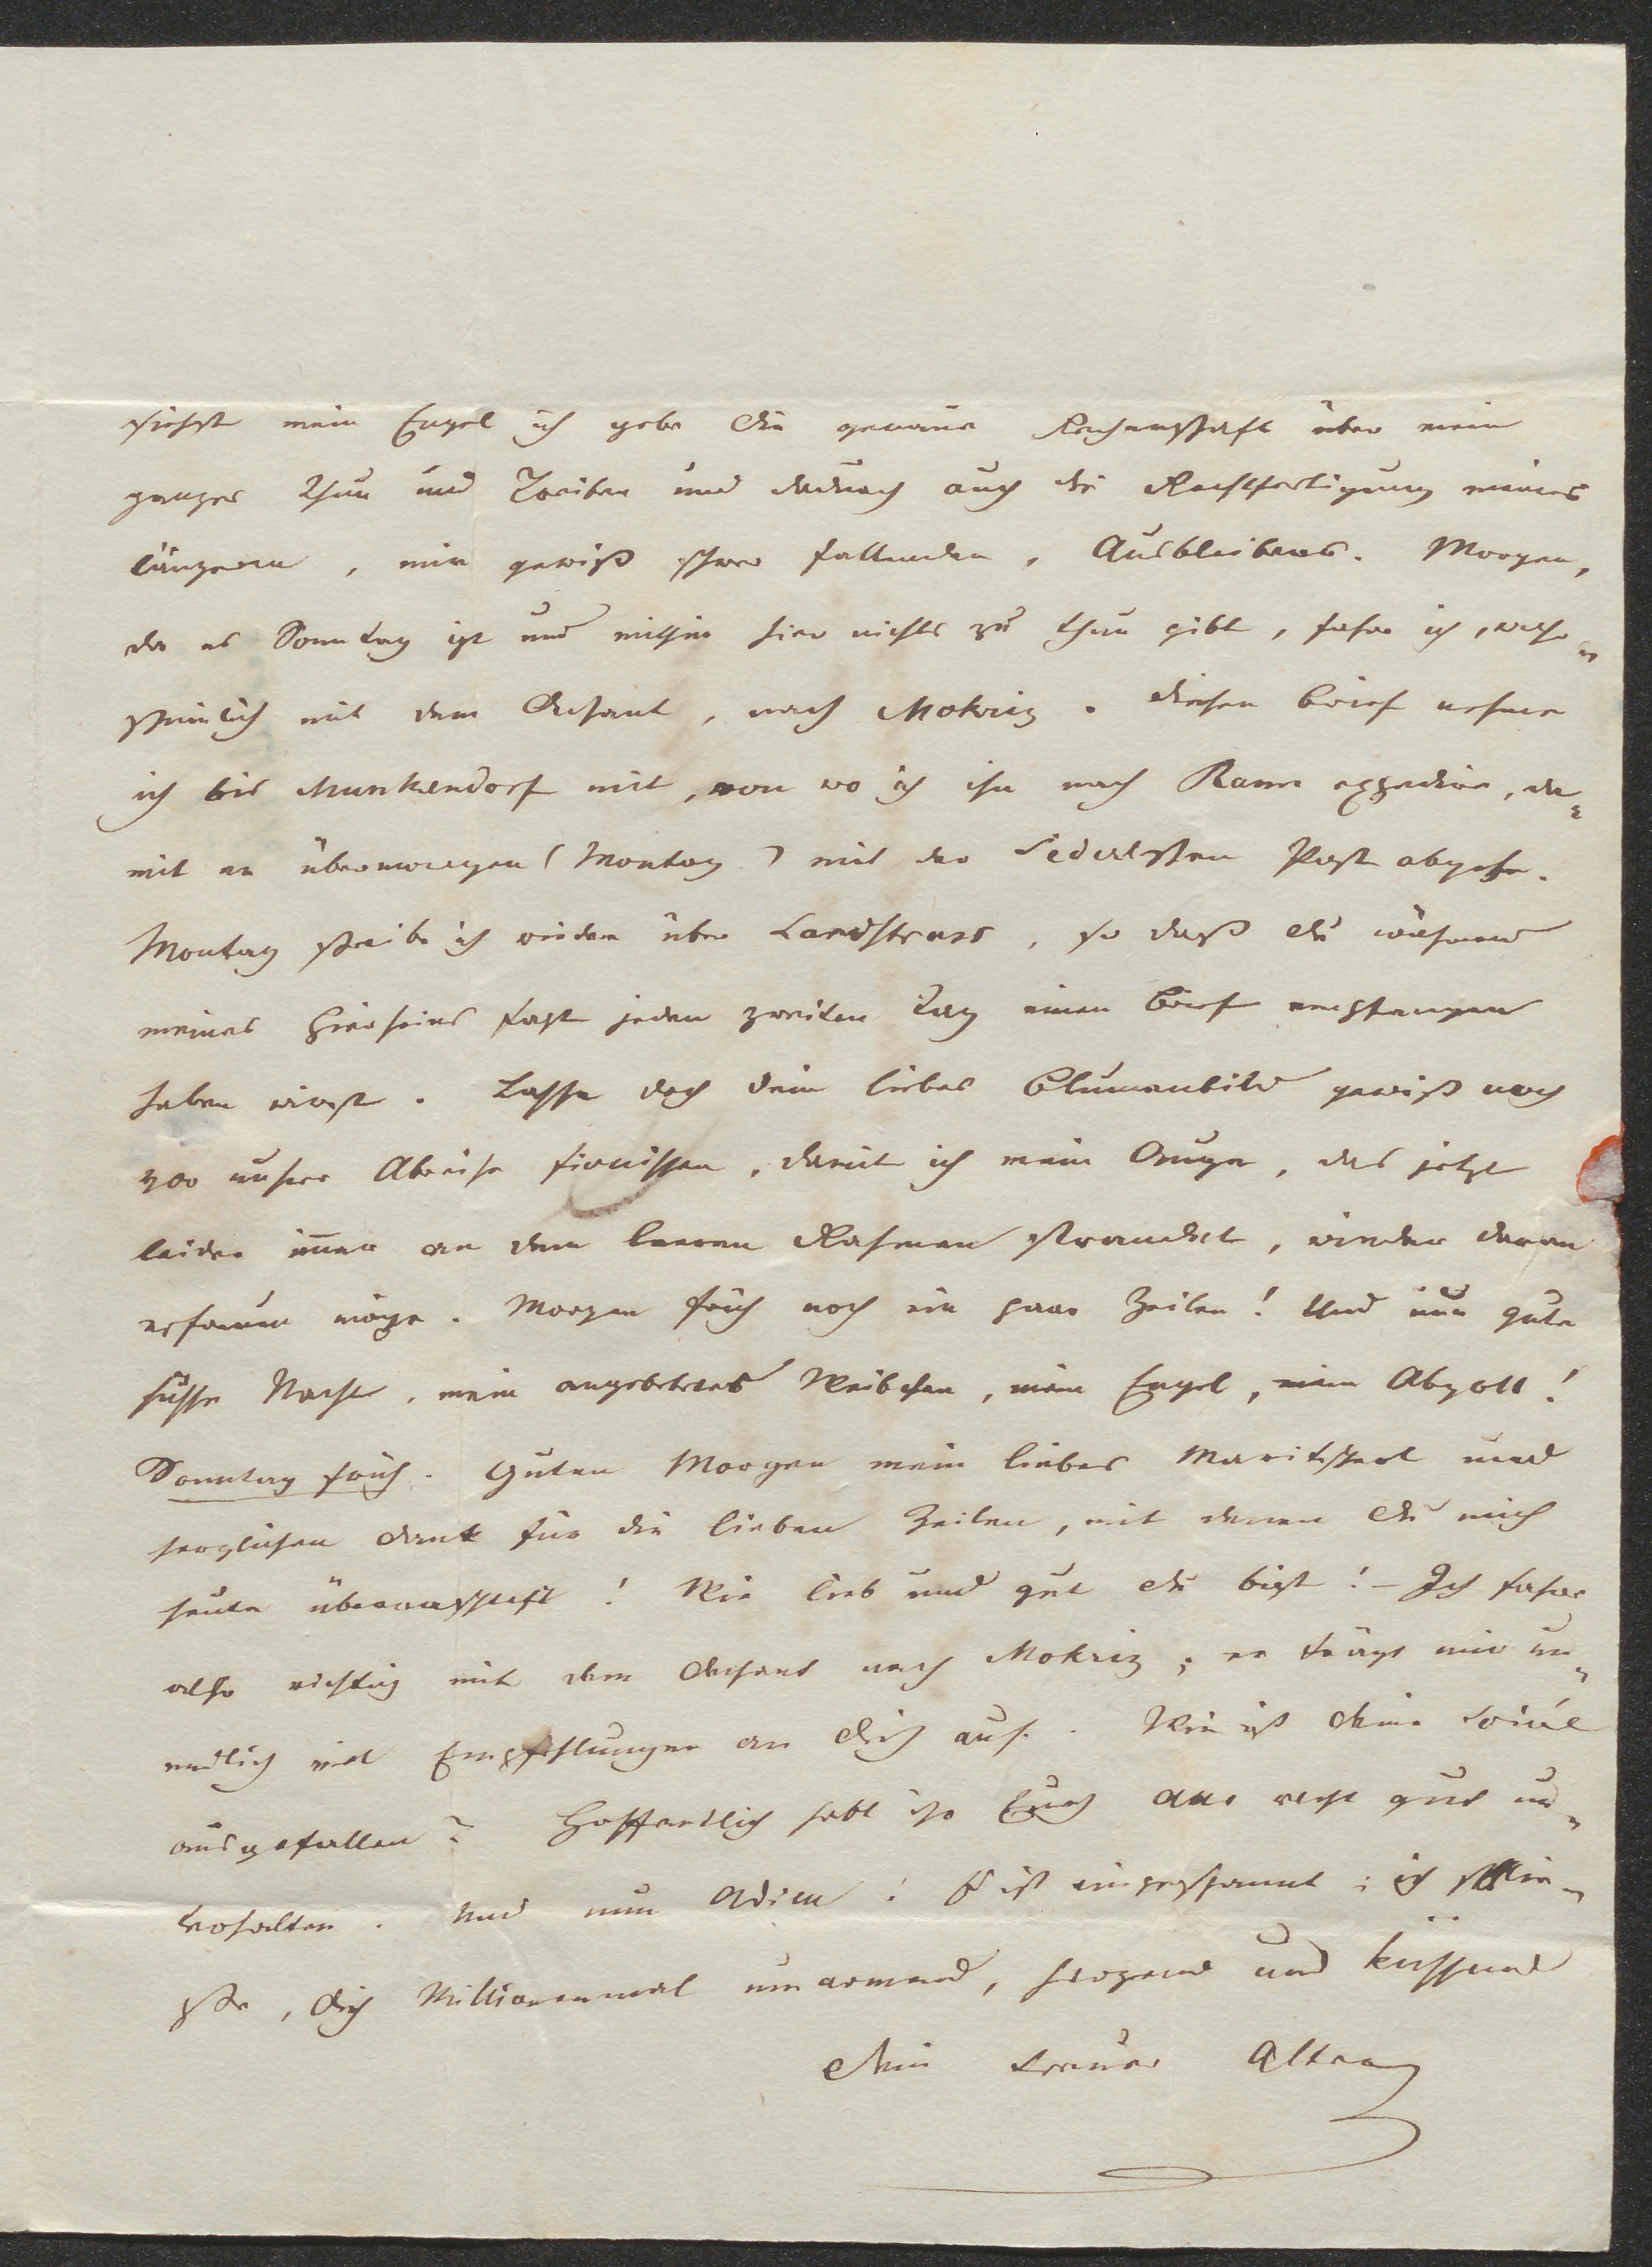 siehst mein Engel ich gebe Dir genaue Rechenschaft über mein
ganzes Thun und Treiben und dadurch auch die Rechtfertigung meines
längeren, mir gewiß schwer fallenden, Ausbleibens. Morgen,
da es Sonntag ist und mithin hier nichts zu thun gibt, fahre ich, wahr=
scheinlich mit dem Dechant, nach Mokriz. Diesen Brief nehme
ich bis Munkendorf mit, von wo ich ihn nach Rann expedire, da=
mit er übermorgen (Montag) mit der Post abgehe.
Montag schreibe ich wieder über Landstrass, so daß Du während
meines Hierseins fast jeden zweiten Tag einen Brief empfangen
haben wirst. Lasse doch dein liebes Blumenbild gewiß noch
vor unsrer Abreise firnissen, damit ich mein Auge, das jetzt
leider immer an dem leeren Rahmen strandet, wieder daran
erfreuen möge. Morgen früh noch ein paar Zeilen! Und nun gute
süsse Nacht, mein angebetetes Weibchen, mein Engel, mein Abgott!
Sonntag früh. Guten Morgen mein liebes Maritscherl und
herzlichen Dank für die lieben Zeilen, mit denen Du mich
heute überraschtest! Wie lieb und gut Du bist! – Ich fahre
also richtig mit dem Dechant nach Mokriz; er trägt mir un=
endlich viel Empfehlungen an Dich auf. Wie ist Deine Soirée
ausgefallen? Hoffentlich habt ihr Euch alle recht gut un=
terhalten. Und nun Adieu! Es ist eingespannt; ich schlie=
ße, Dich Millionenmal umarmend, herzend und küssend
Dein treuer Alter